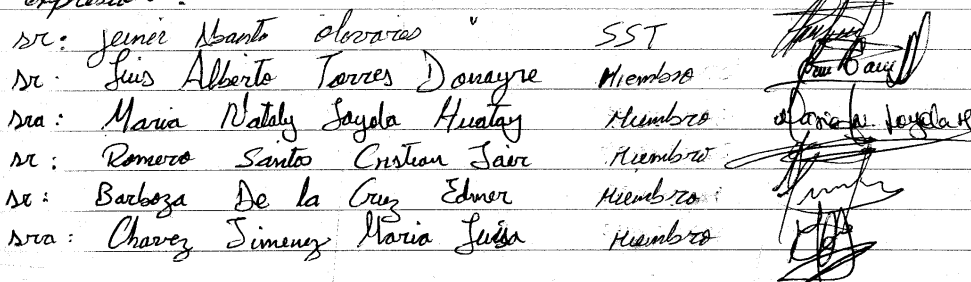 sr: Jeiner Abanto Olivares " SST
sr. Luis Alberto Torres Donayre Miembro
sra: Maria Nataly Loyola Huatay Miembro Maria Loyola H
sr: Romero Santos Cristian Jair Miembro
sr: Barboza De la Cruz Edner Miembro
sra: Chavez Jimenez Maria Luisa Miembro